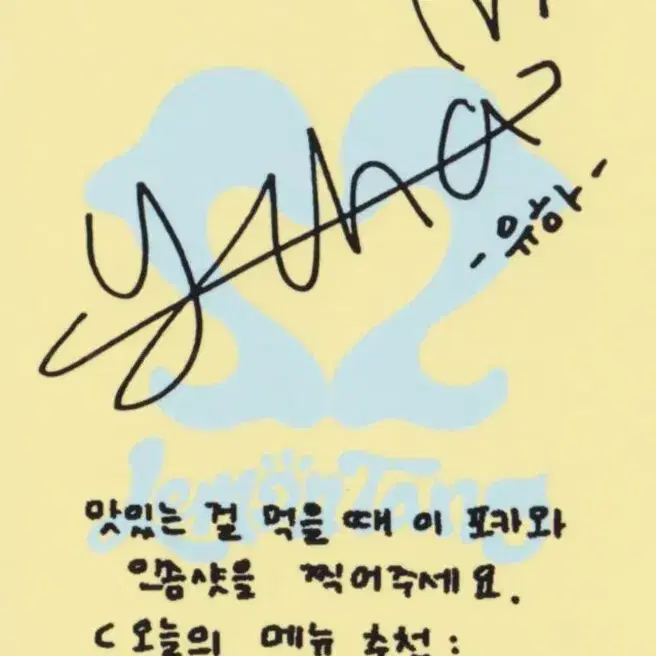 Yuha
- 유하 -
Lemon Tang
맛있는 걸 먹을 때 이 포카와
인증샷을 찍어주세요.
( 오늘의 메뉴 추천 :